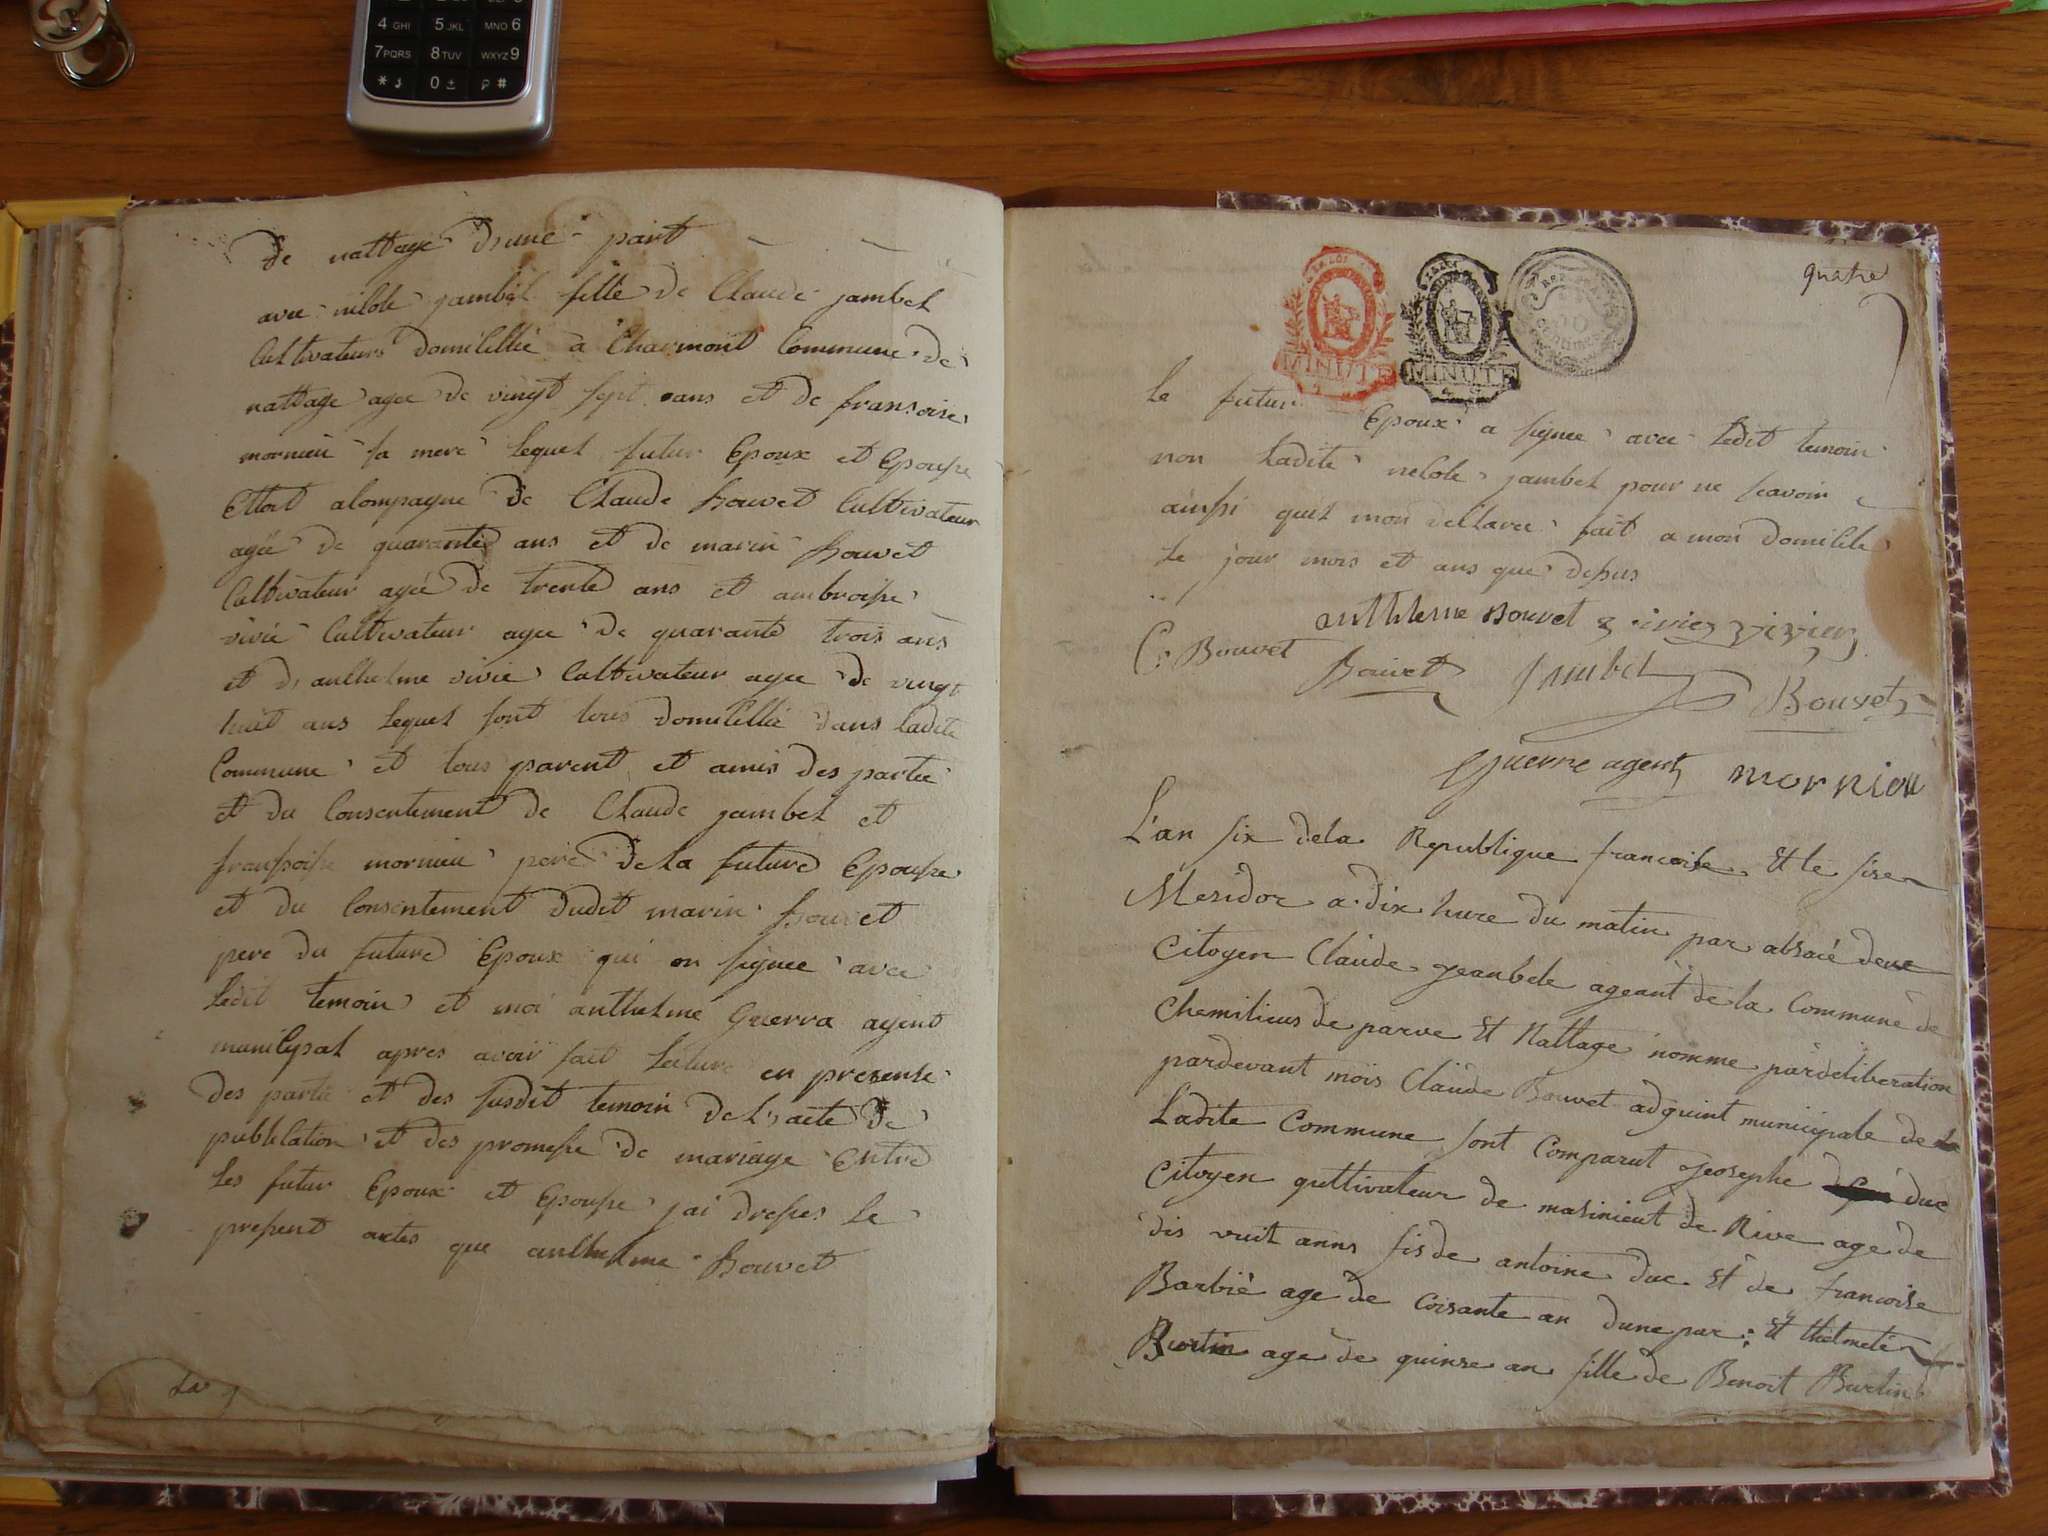 4 GHI 5 JKL MNO 6
7 PQRS 8 TUV WXYZ 9
* 0 #
de nattage d'une part
avec nicole jambet fille de Claude jambet
Cultivateurs domicillié a Charmont Commune de
nattage agee de vingt sept ans et de fransoise
mornieu sa mere lequel futur Epoux et Epouse
Ettoit acompagne de Claude bouvet Cultivateur
agée de quarante ans et de marin bouvet
Cultivateur agée de trente ans et ambroise
vivié Cultivateur agee de quarante trois ans
et d'anthelme vivié Cultivateur agee de vingt
huit ans lequel sont tous domicillié dans ladite
Commune et tous parent et amis des partie
et du Consentement de Claude jambet et
fransoise mornieu pere de la future Epouse
et du Consentement dudit marin bouvet
pere du future Epoux qui on signee avec
ledit temoin et moi anthelme Guerra agent
municipal apres avoir fait lecture en presence
des partie et des susdit temoin de l'acte de
publication et des promesse de mariage entre
les futur Epoux et Epouse j'ai dresses le
present actes que anthelme bouvet
La
quatre
MINUTE
MINUTE
Le futur Epoux a signee avec ledit temoin
non ladite nicole jambet pour ne scavoir
ainssi quel mon declaree fait a mon domicile
le jour mois et ans que dessus
anthleme bouvet vivier
C. Bouvet Bouvet Jambet Bouvet
Guerre agent mornieu
L'an six dela Republique francoise Et le sise
Mesidor a dix hure du matin par absacé deue
Citoyen Claude geanbete ageant de la Commune de
Chemilieus de parve Et Nattage nomme pardeliberation
pardevant mois Claude Bouvet adguint municipale de la
Ladite Commune sont Comparut geosephe duc
Citoyen quttivateur de masinieut de Rive age de
dis vuit anns fis de antoine duc Et de francoise
Barbié age de Coisante an dune par: Et thelmete
Burtin age de quinse an fille de Benoit Burtin